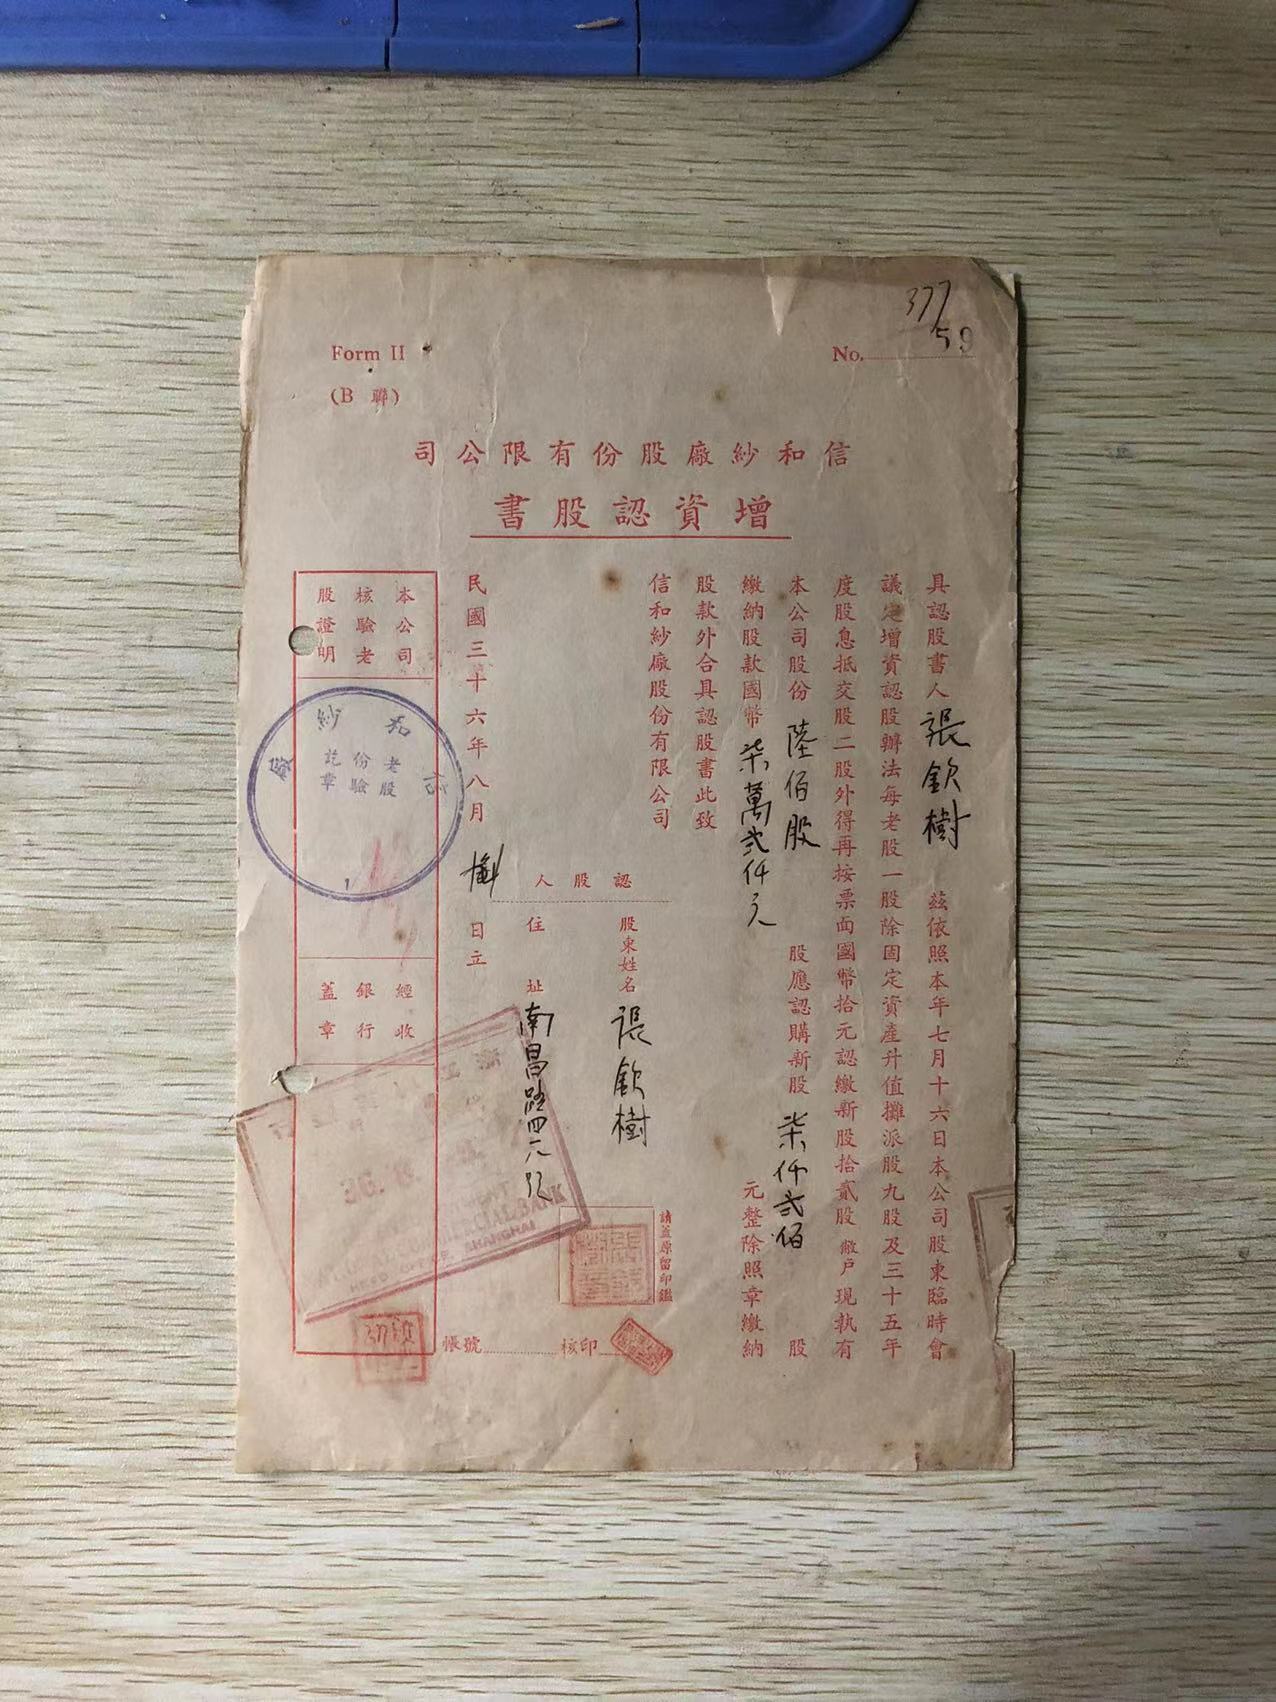 377
59
Form II
No.
(B 聯)
信和紗廠股份有限公司
增資認股書
具認股書人張欽樹 茲依照本年七月十六日本公司股東臨時會
議定增資認股辦法每老股一股除固定資產升值攤派股九股及三十五年
度股息抵交股二股外得再按票面國幣拾元認繳新股拾貳股敝戶現執有
本公司股份陸佰股 股應認購新股柒仟弍佰 股
繳納股款國幣柒萬弍仟元 元整除照章繳納
股款外合具認股書此致
信和紗廠股份有限公司
認股人
股東姓名 張欽樹
住址 南昌路四六號
請蓋原留印鑑
核印
帳號
民國三十六年八月 日立
本公司
核驗老
股證明
信和紗廠
老股
份驗
訖章
1
經收
銀行
蓋章
HEAD OFFICE SHANGHAI